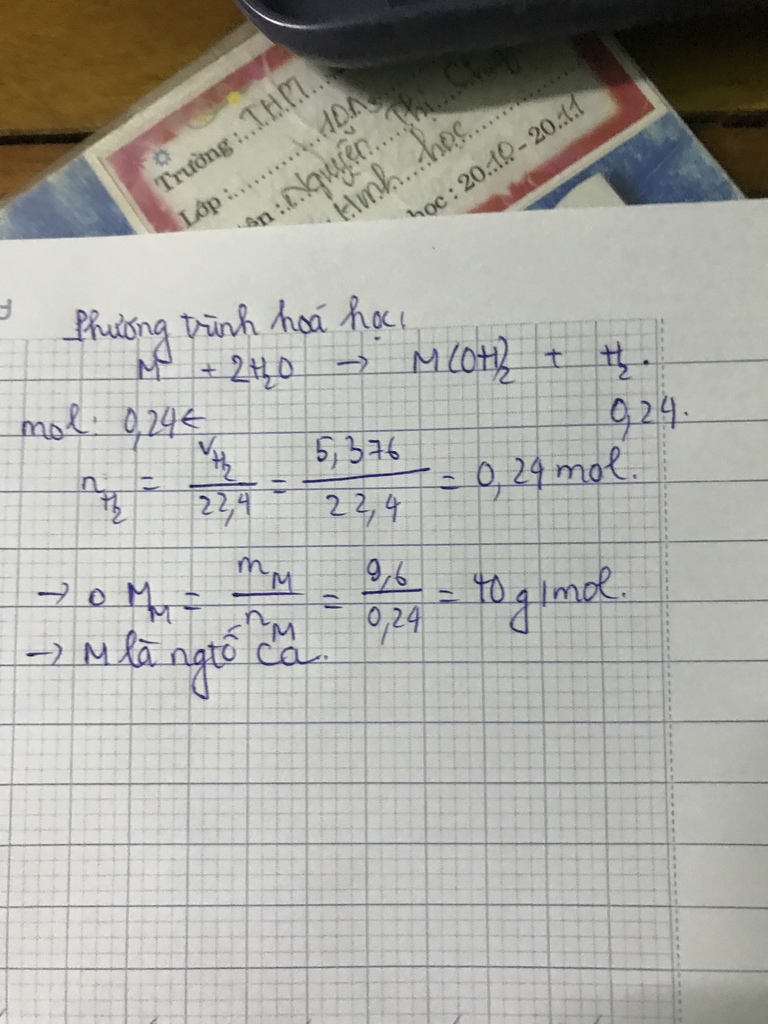 Trường : THPT
Lớp : 10A
Nguyễn Thị
Hình học
học : 20.10 - 20.11
Phương trình hoá học:
M + 2H₂O → M(OH)₂ + H₂.
mol: 0,24 ← 0,24.
n_H₂ = V_H₂/22,4 = 5,376/22,4 = 0,24 mol.
→ M_M = m_M/n_M = 9,6/0,24 = 40 g/mol.
→ M là ngtố Ca.